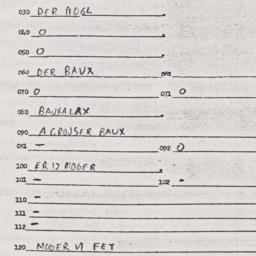 030 DER MOGL
040 O
050 O
060 DER BAUX 061
070 O 071 O
080 BAUXALAX
090 A GROUSER BAUX
091 – 092 O
100 ER IZ MOGER
101 – 102 –
110 –
111 –
112 –
120 MOGER VI FET